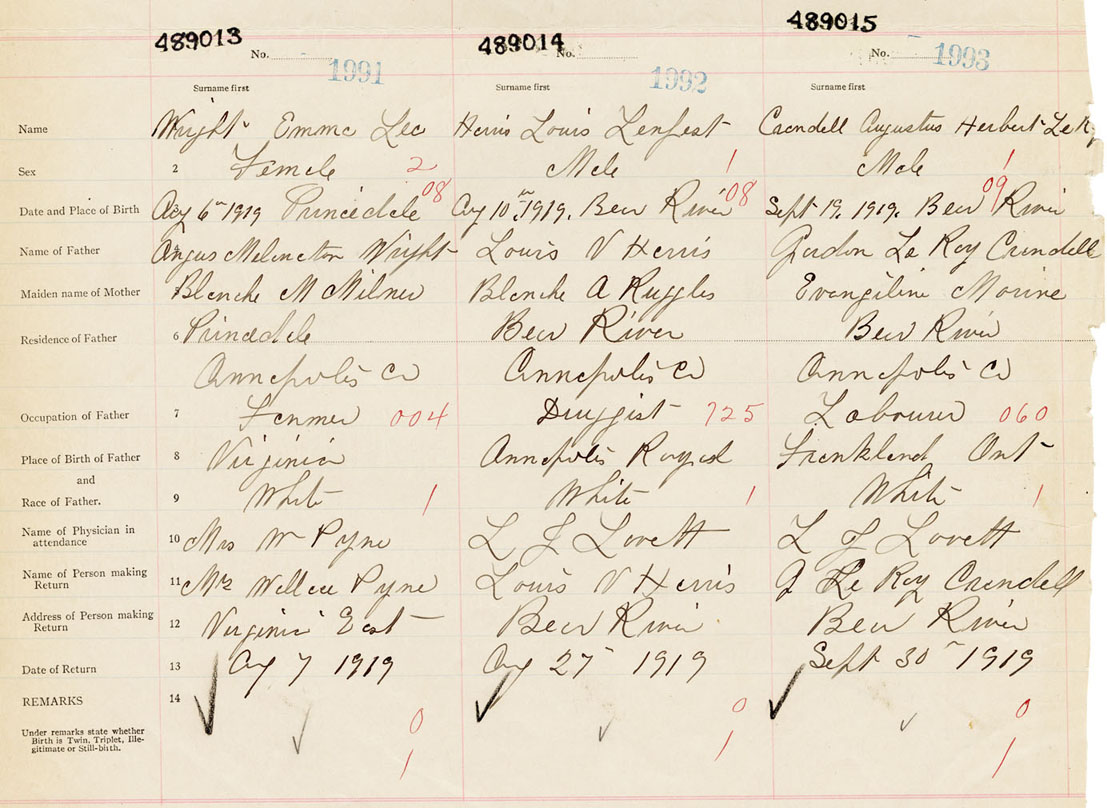 489013 489014 489015
No. No. No.
1991 1992 1993
Surname first Surname first Surname first
Name Wright Emma Lee Harris Louis Lenfest Crandell Augustus Herbert Le R
Sex 2 Female 2 Male 1 Male 1
08 08 09
Date and Place of Birth Aug 6th 1919 Princedale Aug 10th, 1919. Bear River Sept 19, 1919. Bear River
Name of Father Angus Melancton Wright Louis V Harris Gordon Le Roy Crandell
Maiden name of Mother Blanche M Milner Blanche A Ruggles Evangiline Morine
Residence of Father 6 Princedale Bear River Bear River
Annapolis Co Annapolis Co Annapolis Co
Occupation of Father 7 Farmer 004 Druggist 725 Labourer 060
Place of Birth of Father 8 Virginia Annapolis Royal Frankland Ont
and
Race of Father. 9 White 1 White 1 White 1
Name of Physician in
attendance 10 Mrs Wm Pyne L J Lovett L J Lovett
Name of Person making
Return 11 Mrs Wallace Pyne Louis V Harris G Le Roy Crandell
Address of Person making
Return 12 Virginia East Bear River Bear River
Date of Return 13 Aug 7 1919 Aug 27th 1919 Sept 30th 1919
REMARKS 14
Under remarks state whether
Birth is Twin, Triplet, Ille-
gitimate or Still-birth.
0 0 0
1 1 1